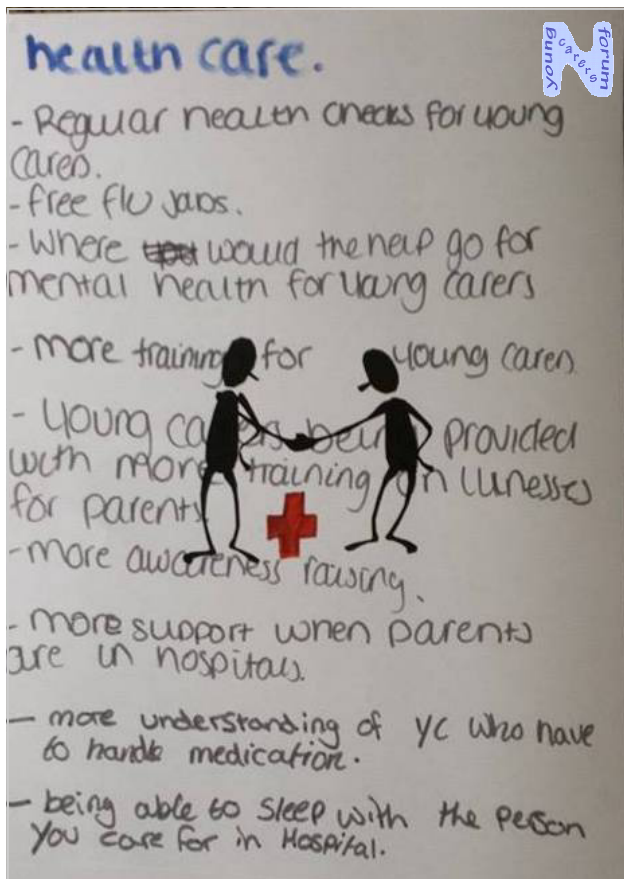 health care.
- Regular health checks for young
carers.
- free flu jabs.
- Where would the help go for
mental health for young carers
- more training for young carers
- young carers being provided
with more training on illnesses
for parents
- more awareness raising.
- more support when parents
are in hospitals.
- more understanding of YC who have
to handle medication.
- being able to sleep with the person
you care for in Hospital.
young
carers
forum